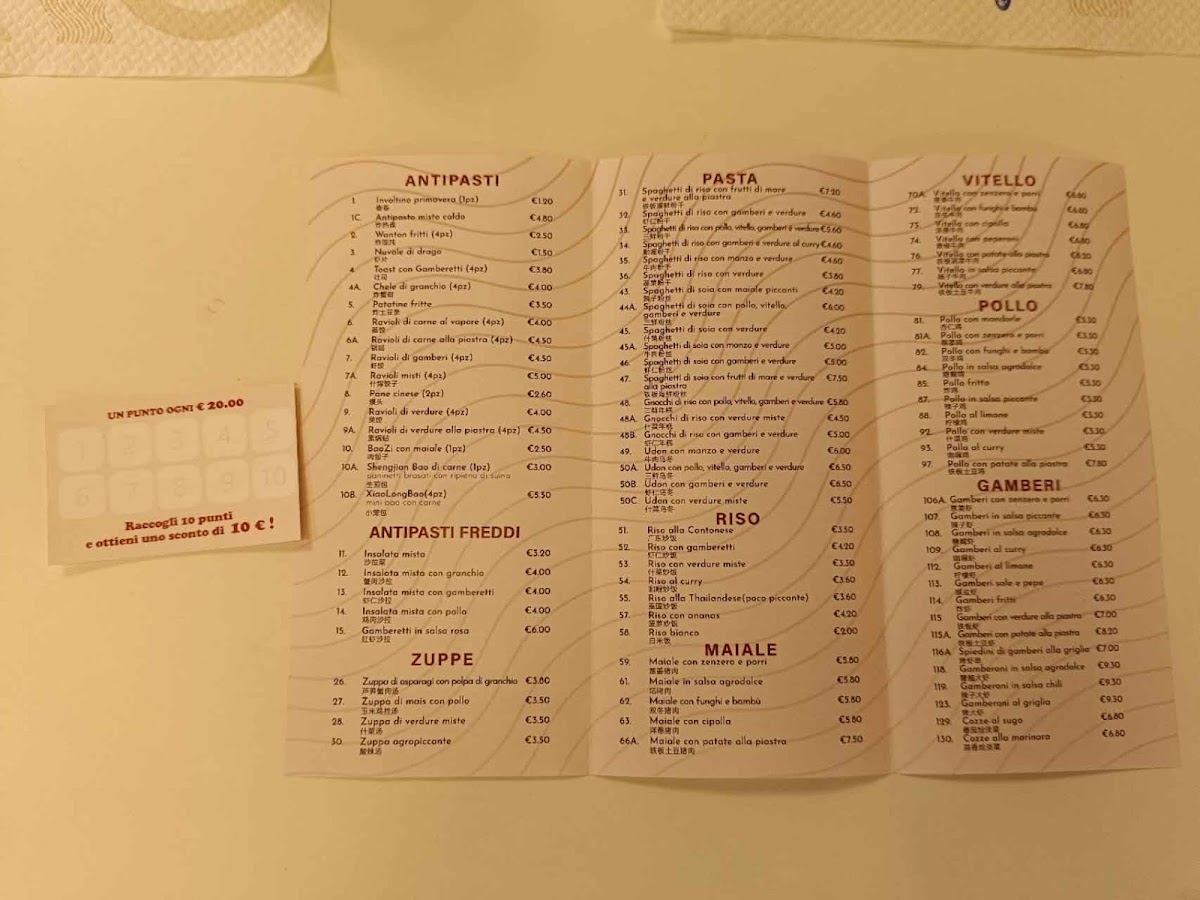 UN PUNTO OGNI € 20.00
Raccogli 10 punti
e ottieni uno sconto di 10 € !
ANTIPASTI
1. Involtino primavera (1pz) €1.20
春卷
1C. Antipasto misto caldo €4.80
炸热盘
2. Wanton fritti (4pz) €2.50
炸馄饨
3. Nuvole di drago €1.50
虾片
4. Toast con Gamberetti (4pz) €3.80
吐司
4A. Chele di granchio (4pz) €4.00
炸蟹钳
5. Patatine fritte €3.50
炸土豆条
6. Ravioli di carne al vapore (4pz) €4.00
蒸饺
6A. Ravioli di carne alla piastra (4pz) €4.50
锅贴
7. Ravioli di gamberi (4pz) €4.50
虾饺
7A. Ravioli misti (4pz) €5.00
什锦饺子
8. Pane cinese (2pz) €2.60
馒头
9. Ravioli di verdure (4pz) €4.00
菜饺
9A. Ravioli di verdure alla piastra (4pz) €4.50
素锅贴
10. BaoZi con maiale (1pz) €2.50
肉包子
10A. Shengjian Bao di carne (1pz) €3.00
paninetti brasati con ripieno di suino
生煎包
10B. XiaoLongBao(4pz) €5.50
mini bao con carne
小笼包
ANTIPASTI FREDDI
11. Insalata mista €3.20
沙拉菜
12. Insalata mista con granchio €4.00
蟹肉沙拉
13. Insalata mista con gamberetti €4.00
虾仁沙拉
14. Insalata mista con pollo €4.00
鸡肉沙拉
15. Gamberetti in salsa rosa €6.00
红虾沙拉
ZUPPE
26. Zuppa di asparagi con polpa di granchio €3.80
芦笋蟹肉汤
27. Zuppa di mais con pollo €3.50
玉米鸡丝汤
28. Zuppa di verdure miste €3.50
什菜汤
30. Zuppa agropiccante €3.50
酸辣汤
PASTA
31. Spaghetti di riso con frutti di mare €7.20
e verdure alla piastra
铁板海鲜粉干
32. Spaghetti di riso con gamberi e verdure €4.60
虾仁粉干
33. Spaghetti di riso con pollo, vitello, gamberi e verdure €5.60
三鲜粉干
34. Spaghetti di riso con gamberi e verdure al curry €4.60
35. Spaghetti di riso con manzo e verdure €4.60
牛肉粉干
36. Spaghetti di riso con verdure €3.80
蔬菜粉干
43. Spaghetti di soia con maiale piccanti €4.20
辣子粉丝
44A. Spaghetti di soia con pollo, vitello, €6.00
gamberi e verdure
三鲜粉丝
45. Spaghetti di soia con verdure €4.20
什菜粉丝
45A. Spaghetti di soia con manzo e verdure €5.00
牛肉粉丝
46. Spaghetti di soia con gamberi e verdure €5.00
虾仁粉丝
47. Spaghetti di soia con frutti di mare e verdure €7.50
alla piastra
铁板海鲜粉丝
48. Gnocchi di riso con pollo, vitello, gamberi e verdure €5.80
三鲜年糕
48A. Gnocchi di riso con verdure miste €4.50
什菜年糕
48B. Gnocchi di riso con gamberi e verdure €5.00
虾仁年糕
49. Udon con manzo e verdure €6.00
牛肉乌冬
50A. Udon con pollo, vitello, gamberi e verdure €6.50
三鲜乌冬
50B. Udon con gamberi e verdure €6.50
虾仁乌冬
50C. Udon con verdure miste €5.50
什菜乌冬
RISO
51. Riso alla Cantonese €3.50
广东炒饭
52. Riso con gamberetti €4.20
虾仁炒饭
53. Riso con verdure miste €3.30
什菜炒饭
54. Riso al curry €3.60
咖喱炒饭
55. Riso alla Thailandese(poco piccante) €3.60
泰国炒饭
57. Riso con ananas €4.20
菠萝炒饭
58. Riso bianco €2.00
白米饭
MAIALE
59. Maiale con zenzero e porri €5.80
葱姜猪肉
61. Maiale in salsa agrodolce €5.80
咕咾肉
62. Maiale con funghi e bambù €5.80
双冬猪肉
63. Maiale con cipolla €5.80
洋葱猪肉
66A. Maiale con patate alla piastra €7.50
铁板土豆猪肉
VITELLO
70A. Vitello con zenzero e porri €6.80
葱姜牛肉
72. Vitello con funghi e bambù €6.80
双冬牛肉
73. Vitello con cipolla €6.80
洋葱牛肉
74. Vitello con peperoni €6.80
青椒牛肉
76. Vitello con patate alla piastra €8.20
77. Vitello in salsa piccante €6.80
辣子牛肉
79. Vitello con verdure alla piastra €7.80
POLLO
81. Pollo con mandorle €5.30
杏仁鸡
81A. Pollo con zenzero e porri €5.30
葱姜鸡
82. Pollo con funghi e bambù €5.30
双冬鸡
84. Pollo in salsa agrodolce €5.30
糖醋鸡
85. Pollo fritto €5.30
炸鸡
87. Pollo in salsa piccante €5.30
辣子鸡
88. Pollo al limone €5.30
柠檬鸡
92. Pollo con verdure miste €5.30
什菜鸡
93. Pollo al curry €5.30
咖喱鸡
97. Pollo con patate alla piastra €7.80
铁板土豆鸡
GAMBERI
106A. Gamberi con zenzero e porri €6.30
葱姜虾
107. Gamberi in salsa piccante €6.30
辣子虾
108. Gamberi in salsa agrodolce €6.30
糖醋虾
109. Gamberi al curry €6.30
咖喱虾
112. Gamberi al limone €6.30
柠檬虾
113. Gamberi sale e pepe €6.30
椒盐虾
114. Gamberi fritti €6.30
炸虾
115 Gamberi con verdure alla piastra €7.00
铁板虾
115A. Gamberi con patate alla piastra €8.20
铁板土豆虾
116A Spiedini di gamberi alla griglia €7.00
烤虾串
118. Gamberoni in salsa agrodolce €9.30
糖醋大虾
119. Gamberoni in salsa chili €9.30
辣子大虾
123. Gamberoni al griglia €9.30
烤大虾
129. Cozze al sugo €6.80
番茄烩淡菜
130. Cozze alla marinara €6.80
蒜香烩淡菜